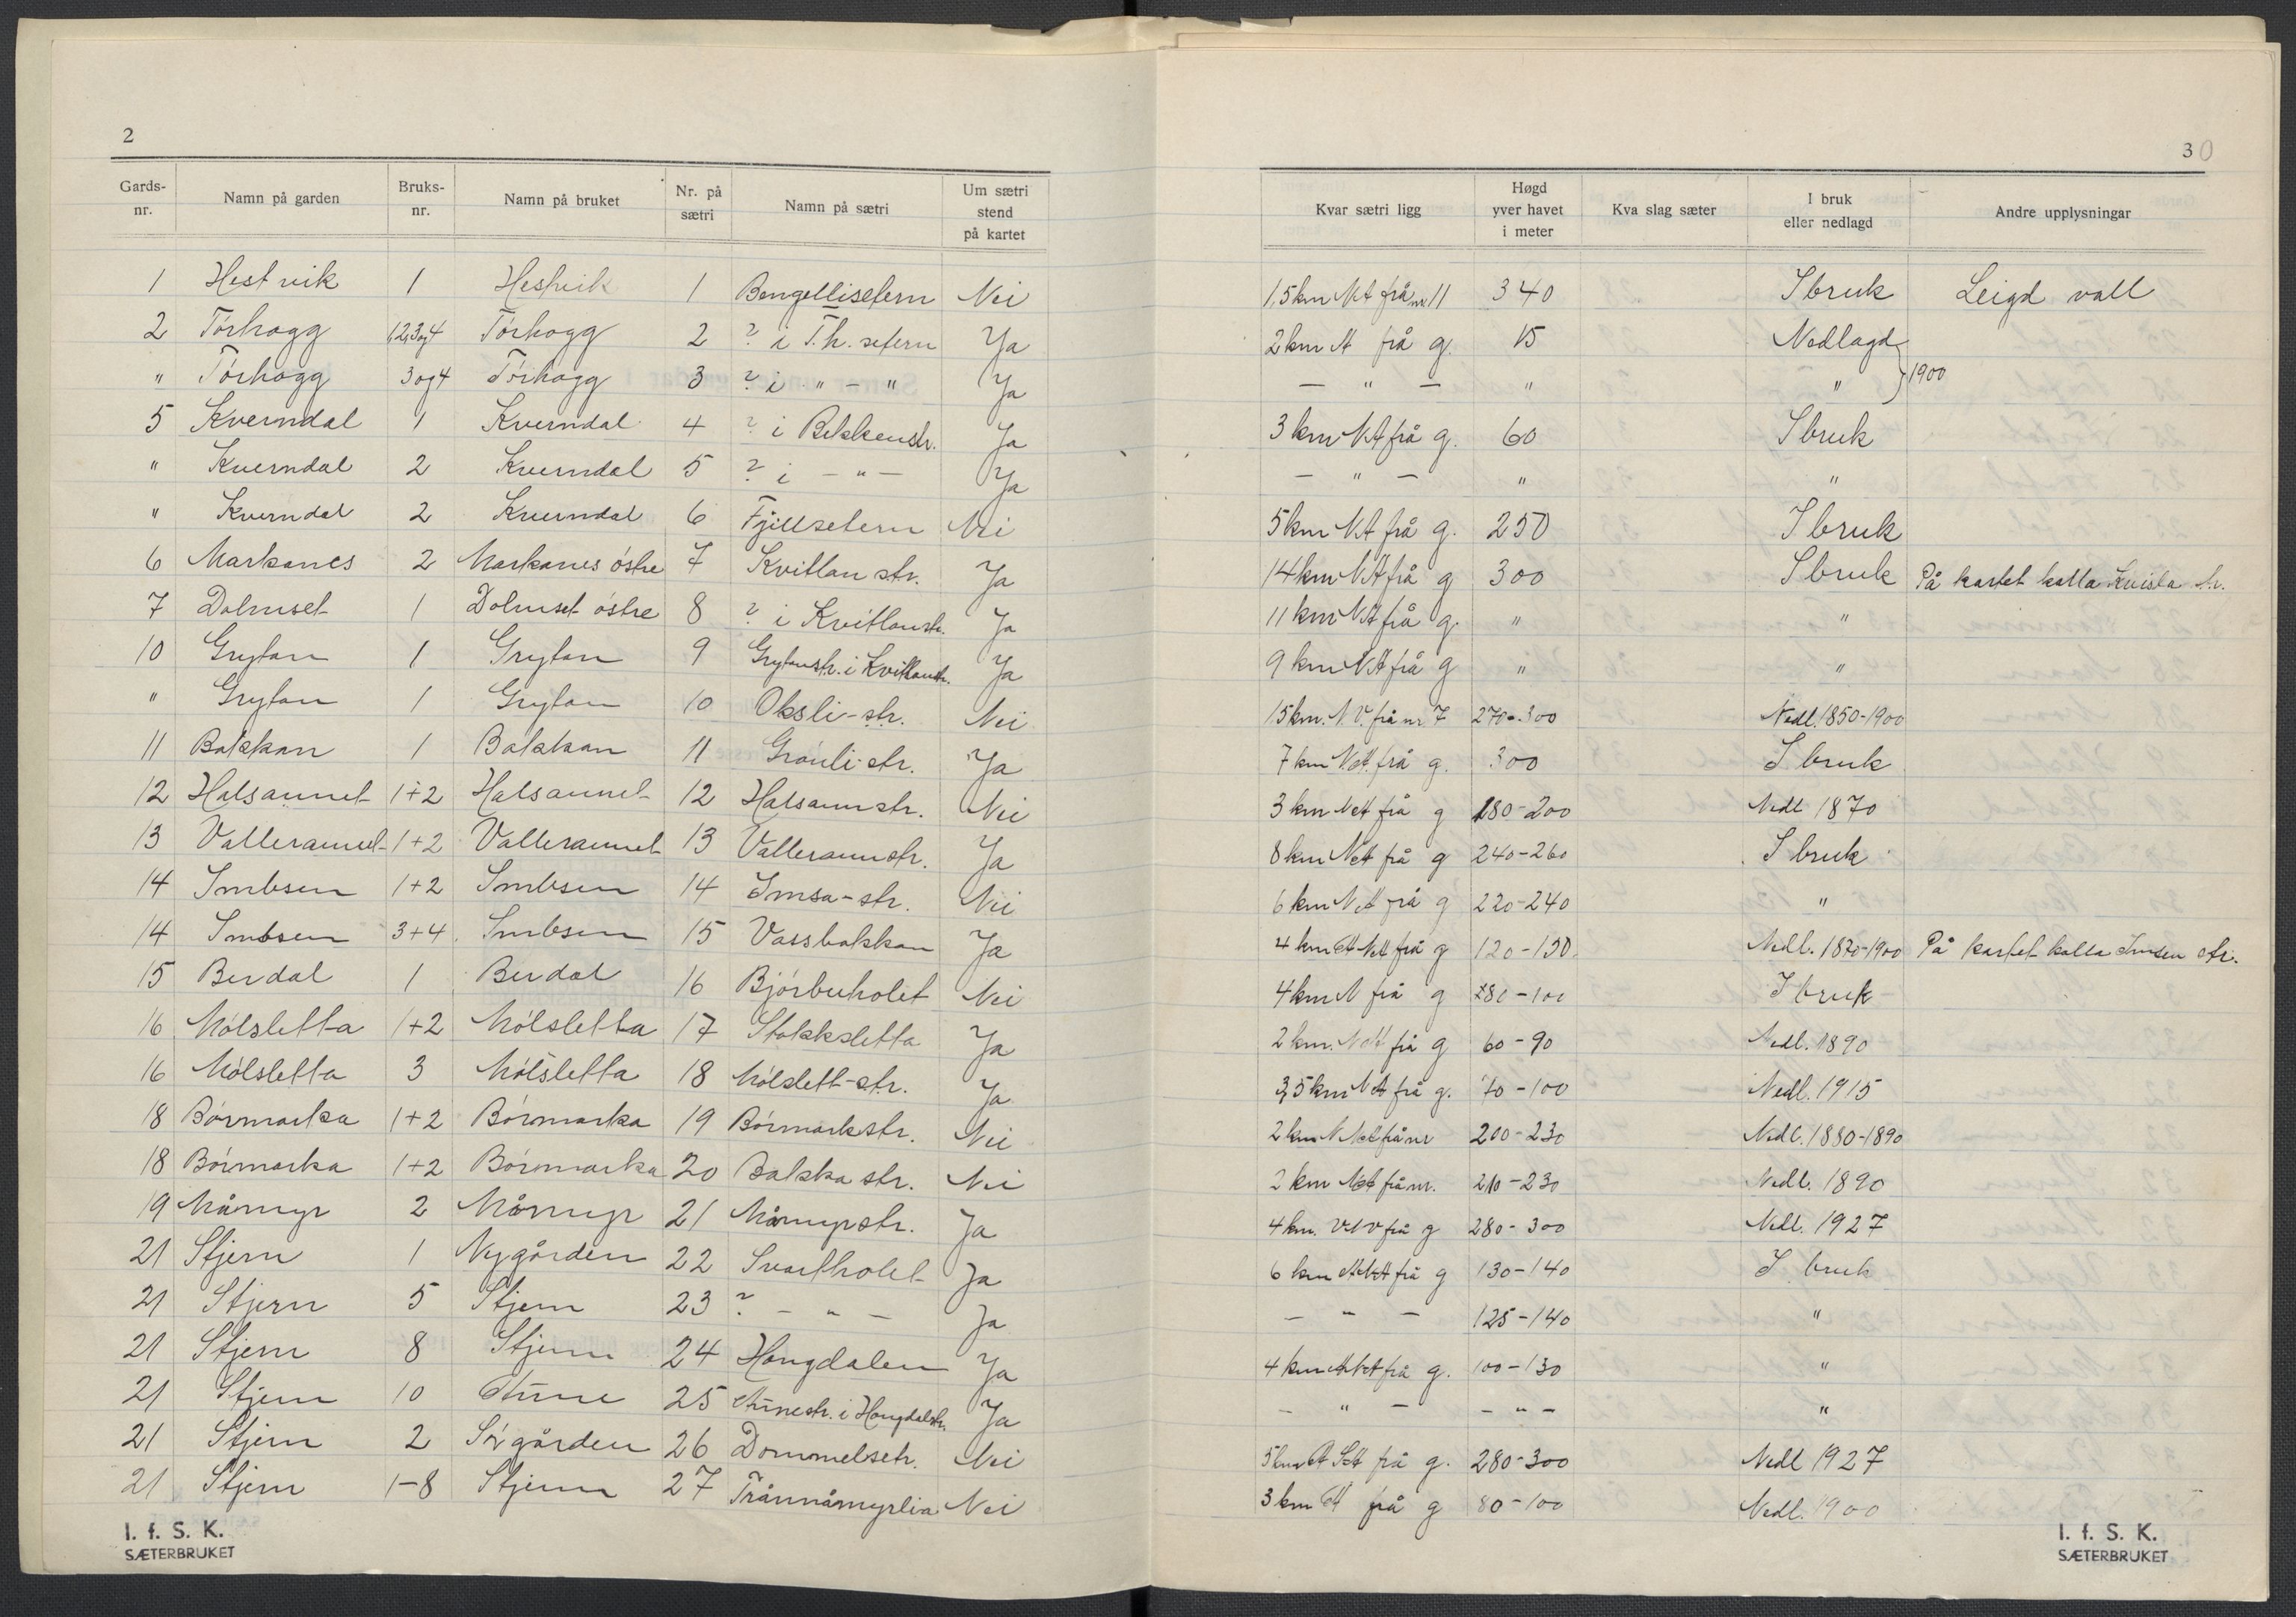 2
Gards-nr. Namn på garden Bruks-nr. Namn på bruket Nr. på sætri Namn på sætri Um sætri stend på kartet
1 Hestvik 1 Hestvik 1 Bengellisetern Nei
2 Törhogg 1,2,3og4 Törhogg 2 ? i T.h. setern Ja
" Törhogg 3og4 Törhogg 3 ? i " - " Ja
5 Kverndal 1 Kverndal 4 ? i Bekkenstr. Ja
" Kverndal 2 Kverndal 5 ? i - " - Ja
" Kverndal 2 Kverndal 6 Fjellsetern Nei
6 Markanes 2 Markanes östre 7 Kvitlan str. Ja
7 Dolmset 1 Dolmset östre 8 ? i Kvitlanstr. Ja
10 Grytan 1 Grytan 9 Grytanstr. i Kvitlanstr. Ja
" Grytan 1 Grytan 10 Oksli-str. Nei
11 Bakkan 1 Bakkan 11 Gronli-str. Ja
12 Halsaunet 1+2 Halsaunet 12 Halsaunstr. Nei
13 Valleraunet 1+2 Valleraunet 13 Valleraunstr. Ja
14 Imbsen 1+2 Imbsen 14 Imsa-str. Nei
14 Imbsen 3+4 Imbsen 15 Vassbakkan Ja
15 Berdal 1 Berdal 16 Bjórbuholet Nei
16 Mólsletta 1+2 Mólsletta 17 Stokksletta Ja
16 Mólsletta 3 Mólsletta 18 Mólslett-str. Ja
18 Bórmarka 1+2 Bórmarka 19 Bórmarkstr. Nei
18 Bórmarka 1+2 Bórmarka 20 Bakka str. Nei
19 Mårmyr 2 Mårmyr 21 Mårmyrstr. Ja
21 Stjern 1 Nygården 22 Svartholet Ja
21 Stjern 5 Stjern 23 ? - " - Ja
21 Stjern 8 Stjern 24 Hongdalen Ja
21 Stjern 10 Aune 25 Aunestr. i Hongdalstr. Ja
21 Stjern 2 Sörgården 26 Dommelsetr. Nei
21 Stjern 1-8 Stjern 27 Trånnåmyrlia Nei
I. f. S. K.
SÆTERBRUKET
30
Kvar sætri ligg Høgd yver havet i meter Kva slag sæter I bruk eller nedlagd Andre upplysningar
1,5 km NA frå nr 11 340 I bruk Leigd vall
2 km A frå g. 15 Nedlagd
- " - " " } 1900
3 km NA frå g. 60 I bruk
- " - " "
5 km NA frå g. 250 I bruk
14 km NA frå g 300 I bruk På kartet kalla Kvisla str.
11 km NA frå g. " "
9 km NA frå g " "
15 km. N.V. frå nr 7 270-300 Nedl. 1850-1900
7 km NA. frå g. 300 I bruk
3 km NA frå g 180-200 Nedl 1870
8 km NA frå g 240-260 I bruk
6 km NA frå g 220-240 "
4 km ANA frå g 120-130. Nedl. 1870-1900 På kartet kalla Imsen str.
4 km N frå g 80-100 I bruk
2 km. NA frå g 60-90 Nedl. 1890
3,5 km NA frå g. 70-100 Nedl. 1915
2 km NNA frå nr 200-230 Nedl. 1880-1890
2 km NA frå nr. 210-230 Nedl. 1890
4 km. VNV frå g 280-300 Nedl. 1927
6 km ANA frå g 130-140 I bruk
- " - 125-140 "
4 km ANA frå g. 100-130 "
- " - - " - "
5 km A SA frå g. 280-300 Nedl 1927
3 km A frå g 80-100 Nedl. 1900
I. f. S. K.
SÆTERBRUKET